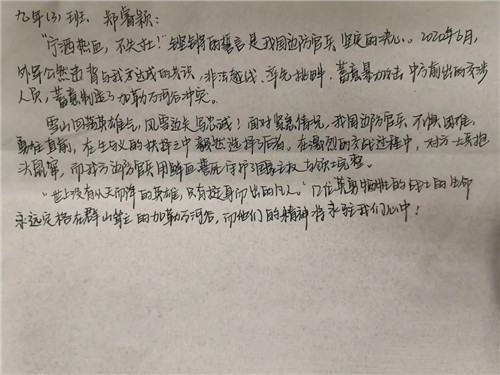 九年(3)班、郑睿颖:
"宁洒热血,不失寸土!"铿锵的誓言是我国边防官兵坚定的决心。2020年6月,
外军公然违背与我方达成的共识,非法越线、率先挑衅、蓄意暴力攻击中方前出的交涉
人员,蓄意制造了加勒万河谷冲突。
雪山回荡英雄气,风雪边关写忠诚!面对紧急情况,我国边防官兵不惧困难、
勇往直前,在生与义的抉择之中毅然选择了后者。在激烈的交战过程中,对方士兵抱
头鼠窜,而我方边防官兵用鲜血誓死守护了国家主权与领土完整。
"世上没有从天而降的英雄,只有挺身而出的凡人。"四位英勇牺牲的战士的生命
永远定格在群山耸立的加勒万河谷,而他们的精神将永驻我们心中!